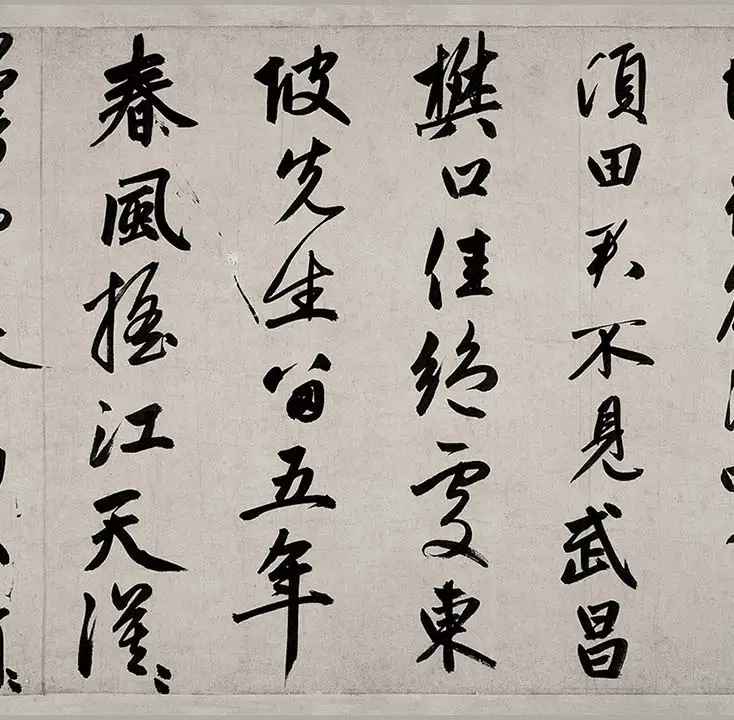 頃田君不見武昌
樊口佳絕處東
坡先生留五年
春風搖江天漠〻